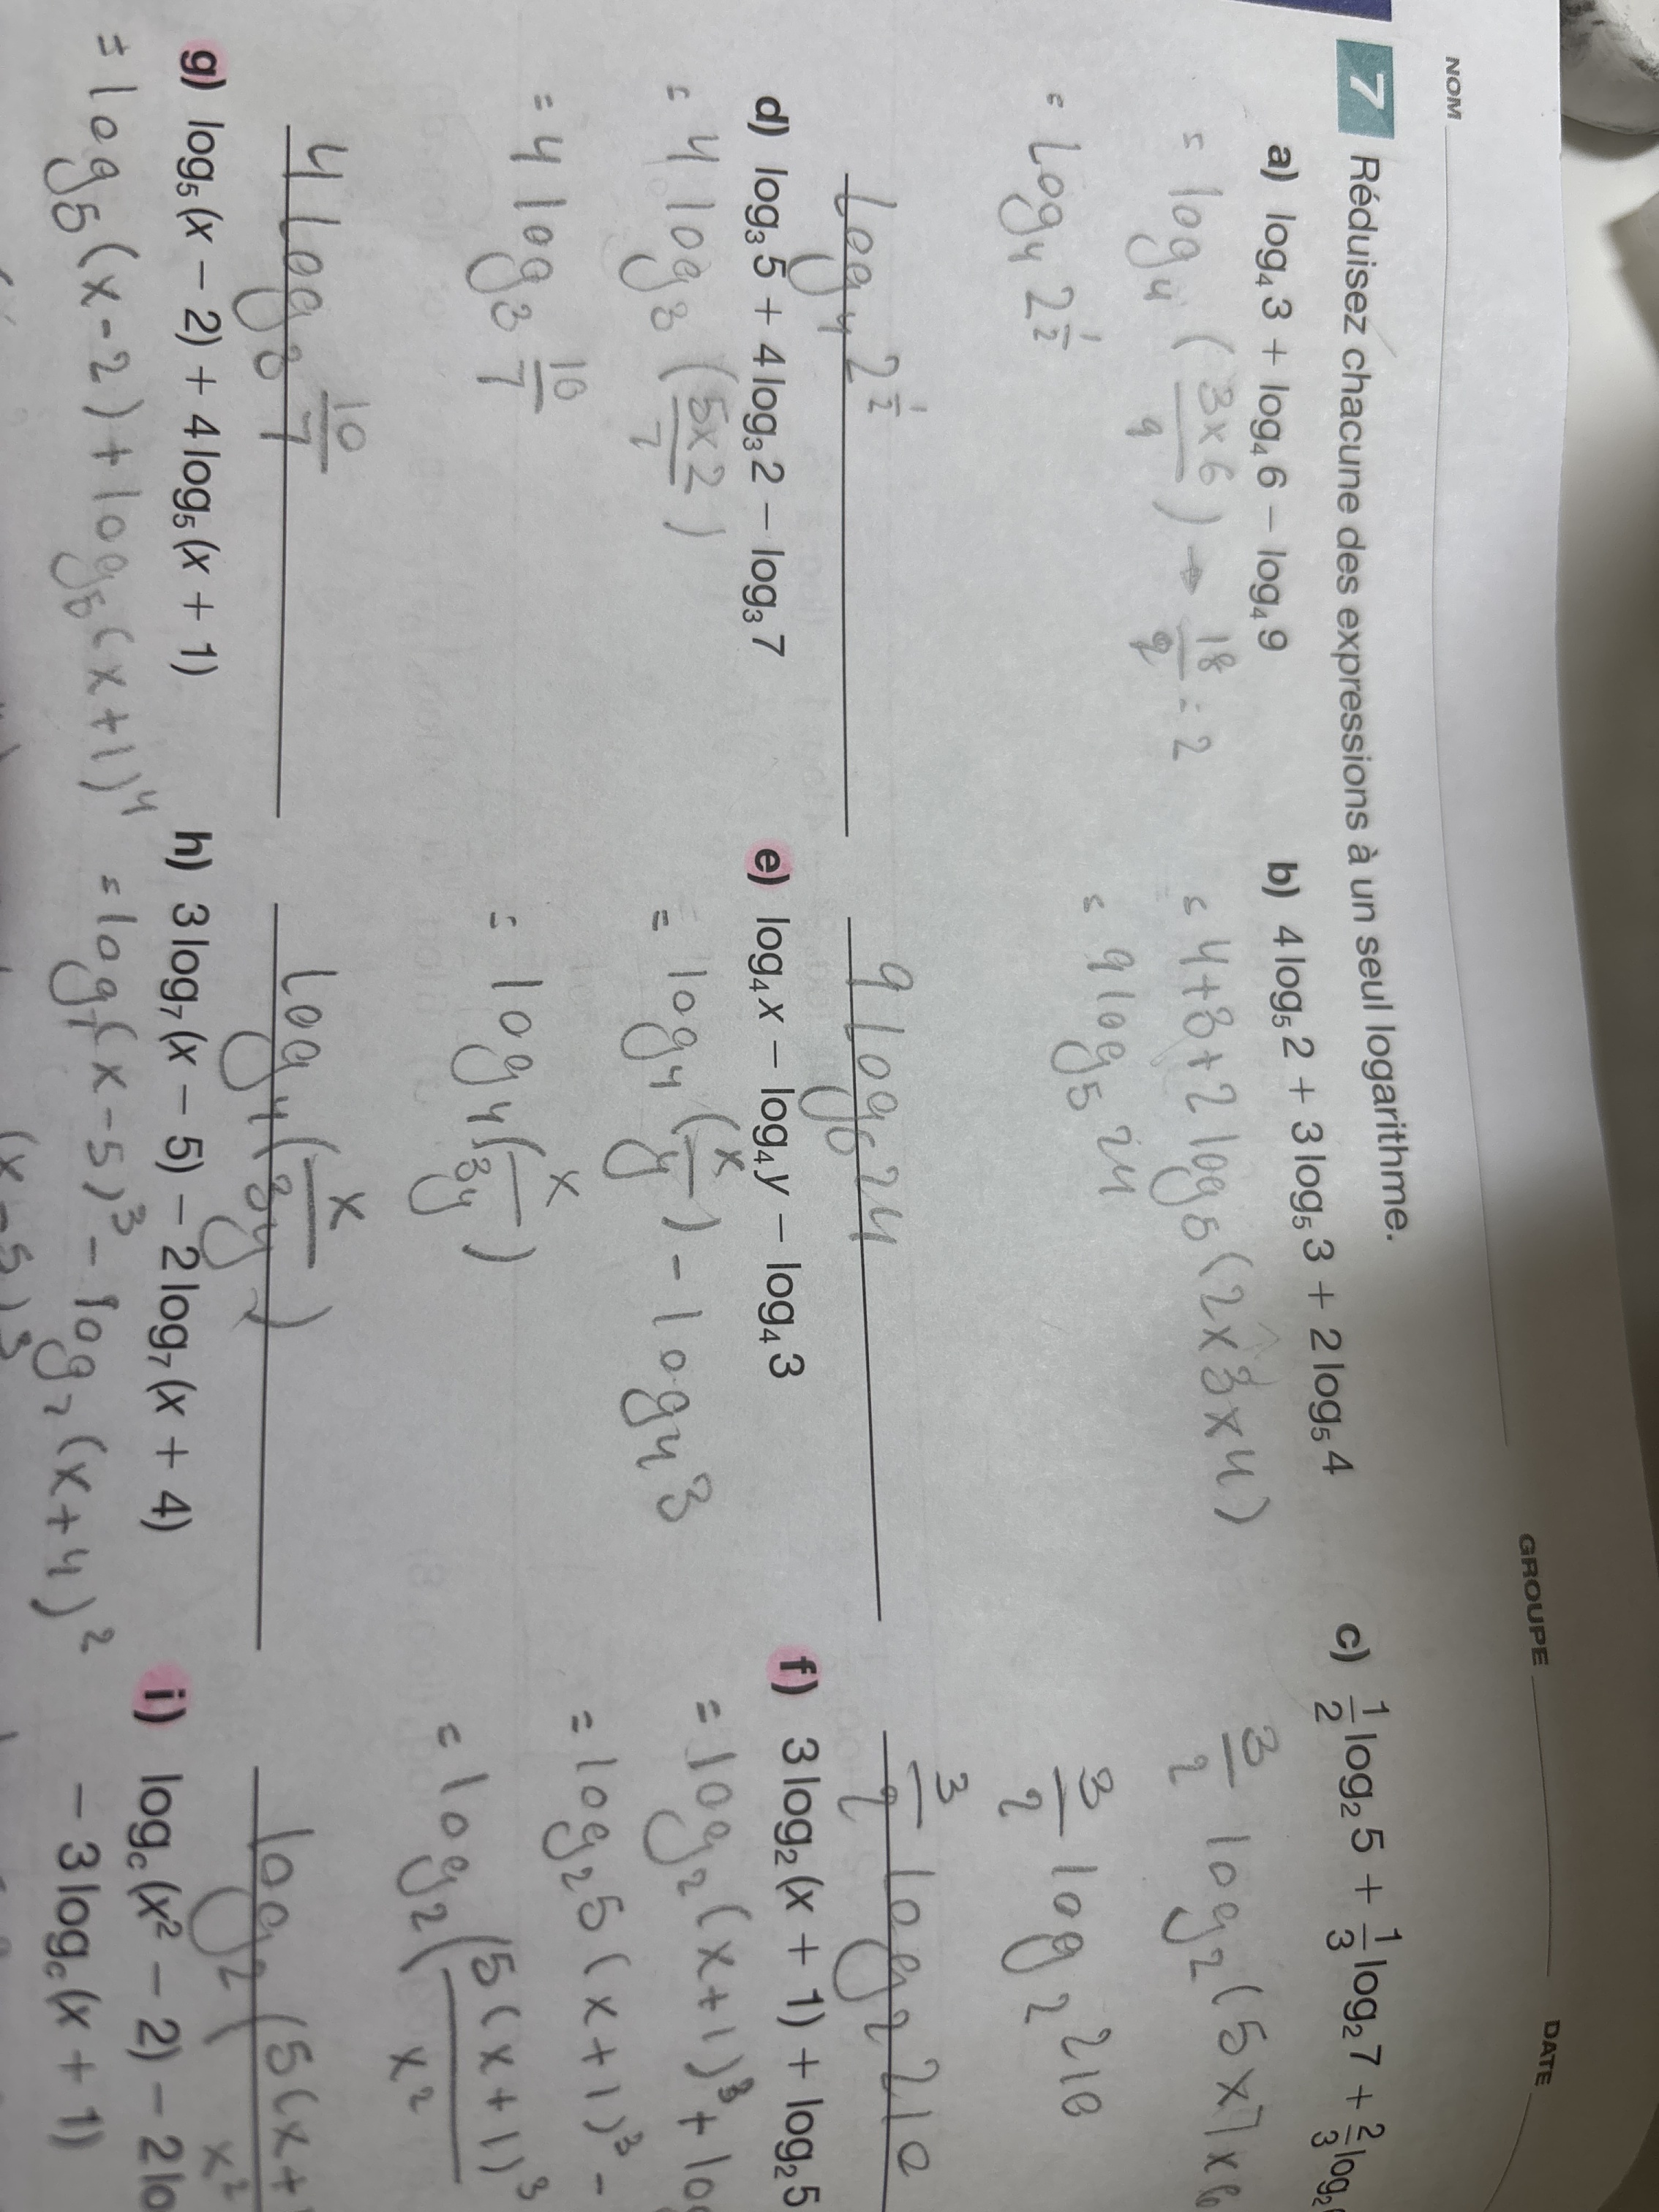 NOM GROUPE DATE
7 Réduisez chacune des expressions à un seul logarithme.
a) log₄3 + log₄6 − log₄9
= log₄ (3x6/9) → 18/9 = 2
= log₄ 2^½
log₄ 2^½
b) 4log₅2 + 3log₅3 + 2log₅4
= 4+3+2 log₅ (2x3x4)
= 9 log₅ 24
9 log₅ 24
c) 1/2 log₂5 + 1/3 log₂7 + 2/3 log₂
3/2 log₂ (5x7x6
3/2 log₂ 210
3/2 log₂ 210
d) log₃5 + 4log₃2 − log₃7
= 4 log₃ (5x2/7)
= 4 log₃ 10/7
4 log₃ 10/7
e) log₄x − log₄y − log₄3
= log₄ (x/y) - log₄3
= log₄ (x/3y)
log₄ (x/3y)
f) 3log₂(x + 1) + log₂5
= log₂(x+1)³ + lo
= log₂5(x+1)³ -
= log₂ (5(x+1)³/x²
log₂ (5(x+ x²
g) log₅(x − 2) + 4log₅(x + 1)
= log₅(x-2) + log₅(x+1)⁴
h) 3log₇(x − 5) − 2log₇(x + 4)
= log₇(x-5)³ - log₇(x+4)²
(x-5)³
i) log_c(x² − 2) − 2lo
− 3log_c(x + 1)